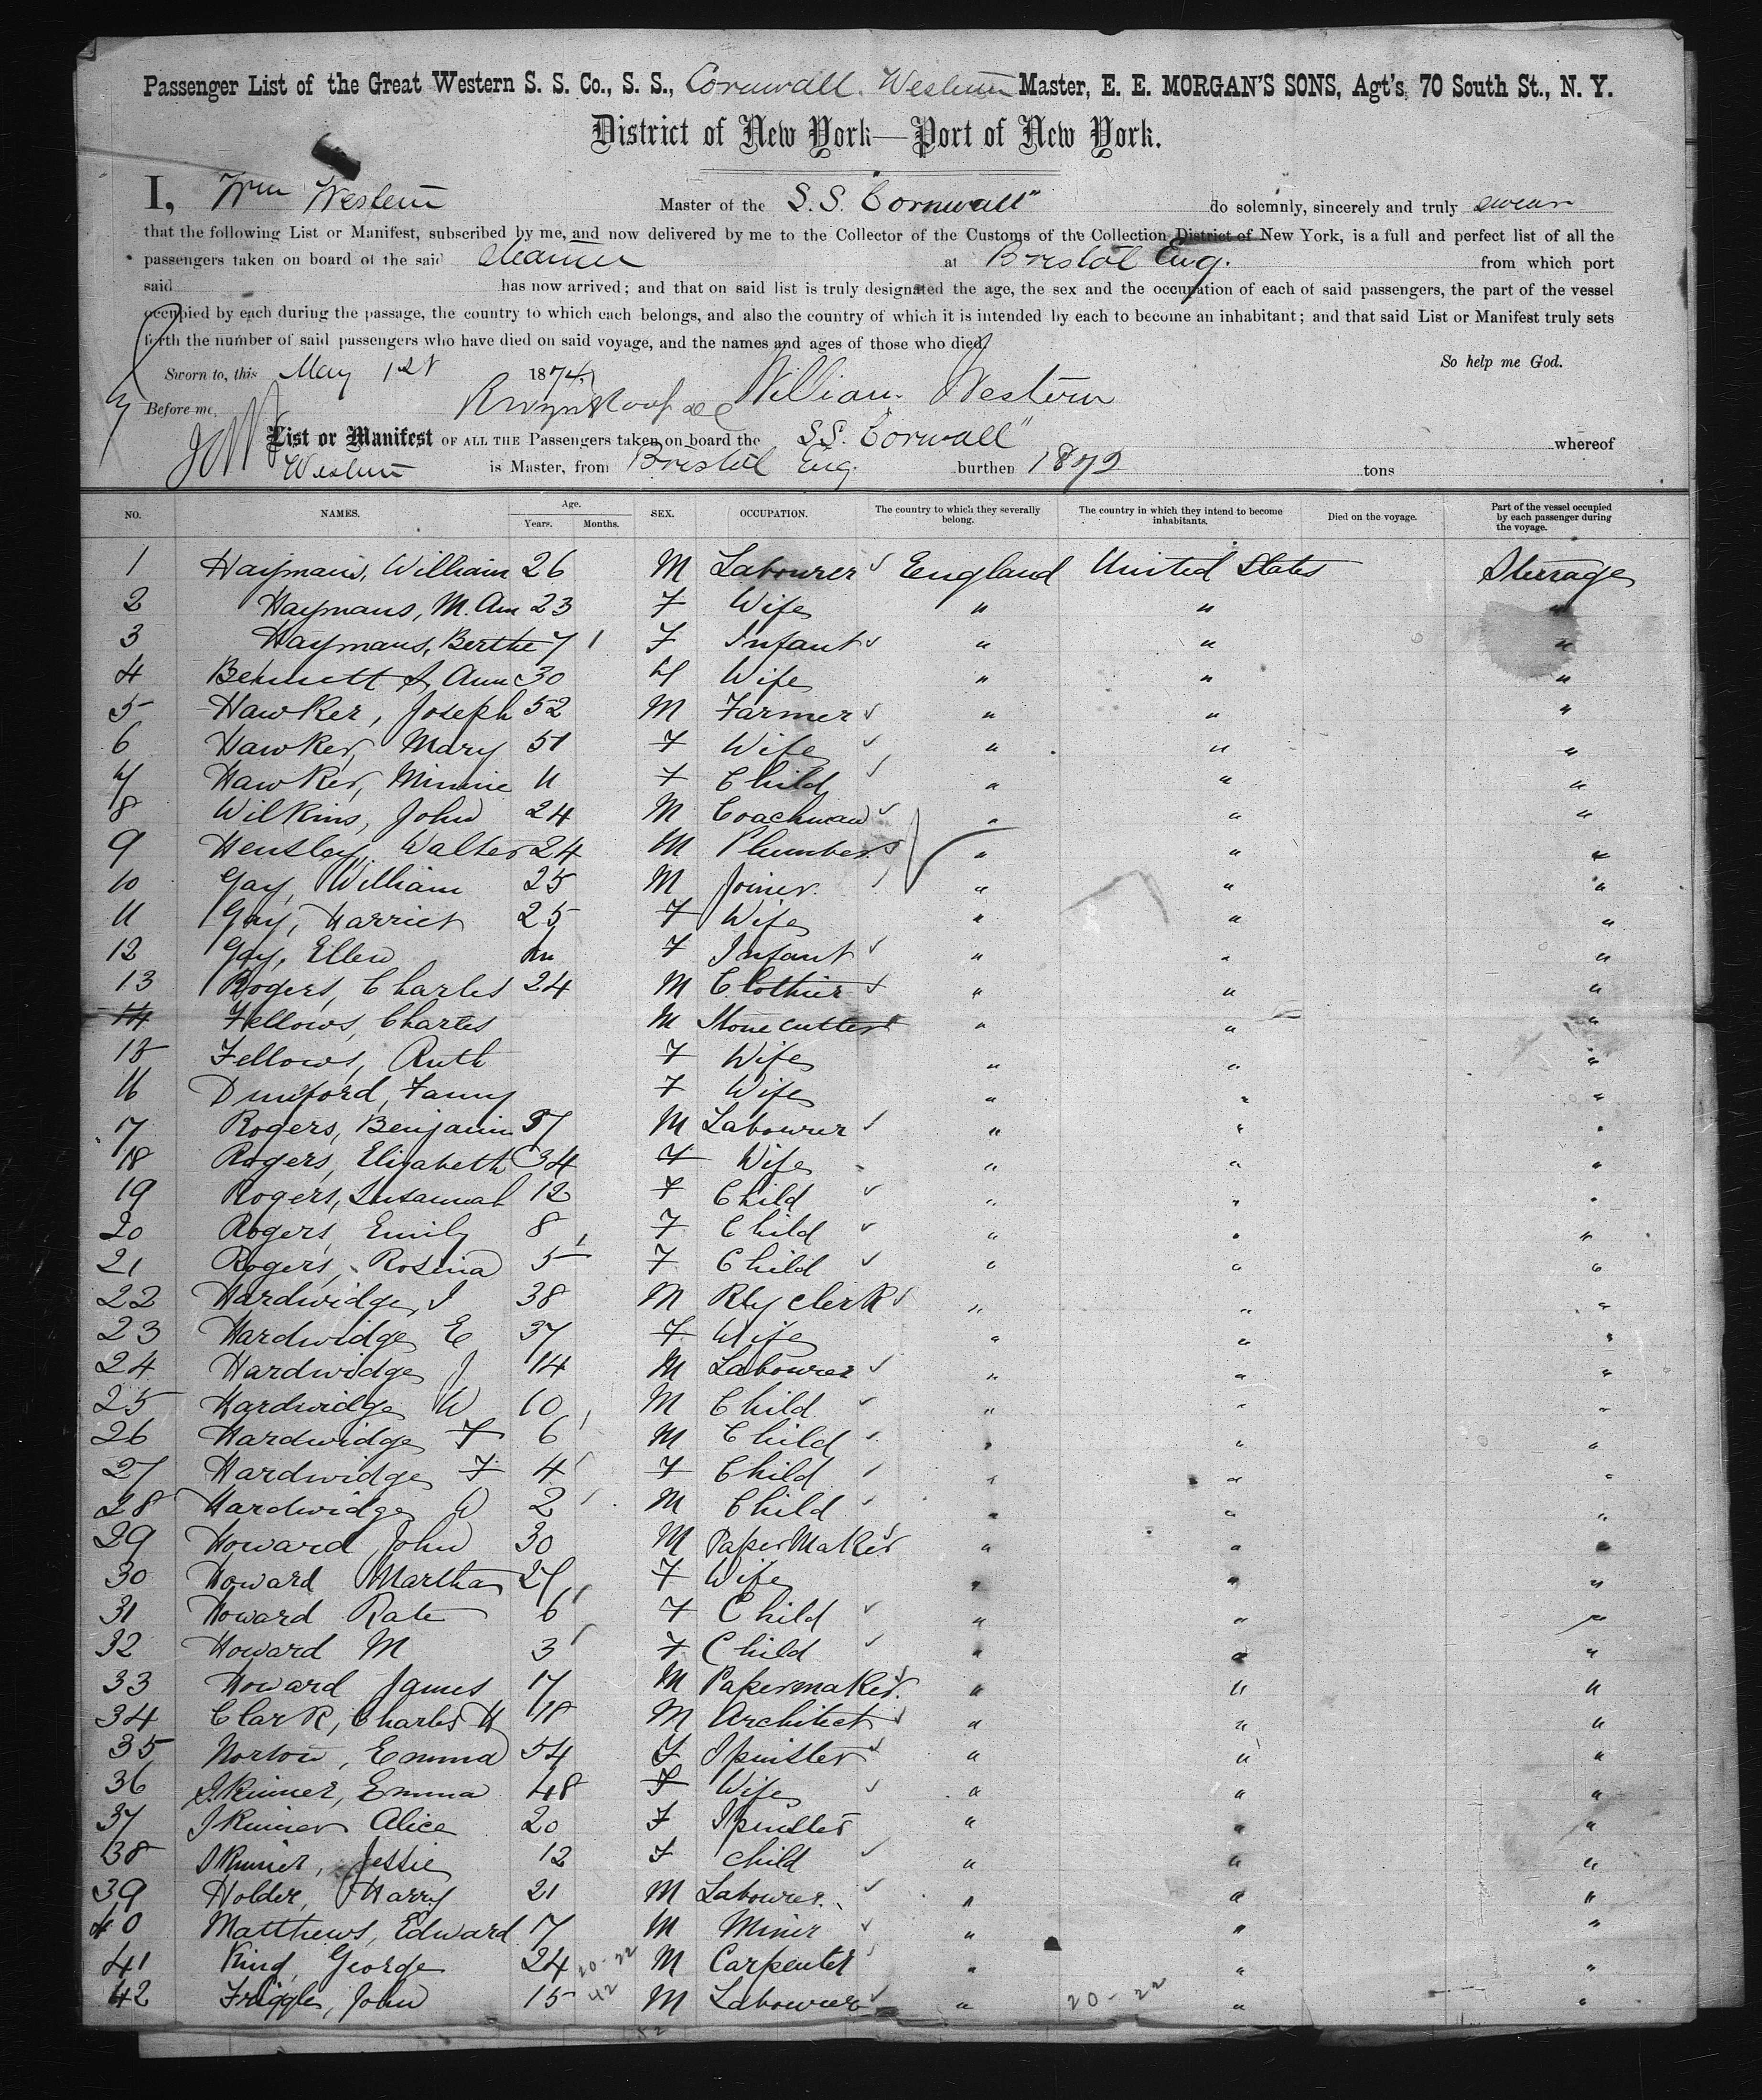 Passenger List of the Great Western S. S. Co., S. S., Cornwall. Western Master, E. E. MORGAN'S SONS, Agt's, 70 South St., N. Y.
District of New York—Port of New York.
I, Wm Western Master of the S.S. "Cornwall" do solemnly, sincerely and truly swear
that the following List or Manifest, subscribed by me, and now delivered by me to the Collector of the Customs of the Collection District of New York, is a full and perfect list of all the
passengers taken on board of the said steamer at Bristol Eng. from which port
said has now arrived; and that on said list is truly designated the age, the sex and the occupation of each of said passengers, the part of the vessel
occupied by each during the passage, the country to which each belongs, and also the country of which it is intended by each to become an inhabitant; and that said List or Manifest truly sets
forth the number of said passengers who have died on said voyage, and the names and ages of those who died.
So help me God.
Sworn to, this May 1st 1874.
Before me, William Western
List or Manifest OF ALL THE Passengers taken on board the SS. Corwall" whereof
Western is Master, from Bristol Eng. burthen 1872 tons
NO. NAMES. Age. Years. Months. SEX. OCCUPATION. The country to which they severally belong. The country in which they intend to become inhabitants. Died on the voyage. Part of the vessel occupied by each passenger during the voyage.
1 Haymans, William 26 M Labourer England United States Steerage
2 Haymans, M. Ann 23 F Wife " " "
3 Haymans, Berthe 7 F Infant " " "
4 Bennett Ann 30 Wife " " "
5 Hawker, Joseph 52 M Farmer " " "
6 Hawker, Mary 51 F Wife " " "
7 Hawker, Minnie 11 F Child " " "
8 Wilkins, John 24 M Coachman " " "
9 Hensley, Walter 24 M Plumber " " "
10 Gay, William 25 M Joiner. " " "
11 Gay, Harriet 25 F Wife " " "
12 Gay, Ellen F Infant " " "
13 Rogers, Charles 24 M Clothier " " "
14 Fellows, Charles M Stone cutter " " "
15 Fellows, Ruth F Wife " " "
16 Dunford, Fanny F Wife " " "
17 Rogers, Benjamin 37 M Labourer " " "
18 Rogers, Elizabeth 34 F Wife " " "
19 Rogers, Susannah 12 F Child " " "
20 Rogers, Emily 8 F Child " " "
21 Rogers, Rosina 5 F Child " " "
22 Hardwidge, I 38 M Rly clerk " " "
23 Hardwidge E 37 F Wife " " "
24 Hardwidge J 14 M Labourer " " "
25 Hardwidge W 10 M Child " " "
26 Hardwidge F 6 M Child " " "
27 Hardwidge F 4 F Child " " "
28 Hardwidge W 2 M Child " " "
29 Howard John 30 M PaperMaker " " "
30 Howard Martha 27 F Wife " " "
31 Howard Kate 6 F Child " " "
32 Howard M 3 F Child " " "
33 Howard James 17 M Papermaker. " " "
34 Clark, Charles H 18 M Architect " " "
35 Norton, Emma 54 F Spinster " " "
36 Skinner, Emma 48 F Wife " " "
37 Skinner Alice 20 F Spinster " " "
38 Skinner, Jessie 12 F child " " "
39 Holder, Harry 21 M Labourer. " " "
40 Matthews, Edward 17 M Miner " " "
41 King, George 24 20-22 M Carpenter " " "
42 Friggle, John 15 42 M Labourer " 20-22 " "